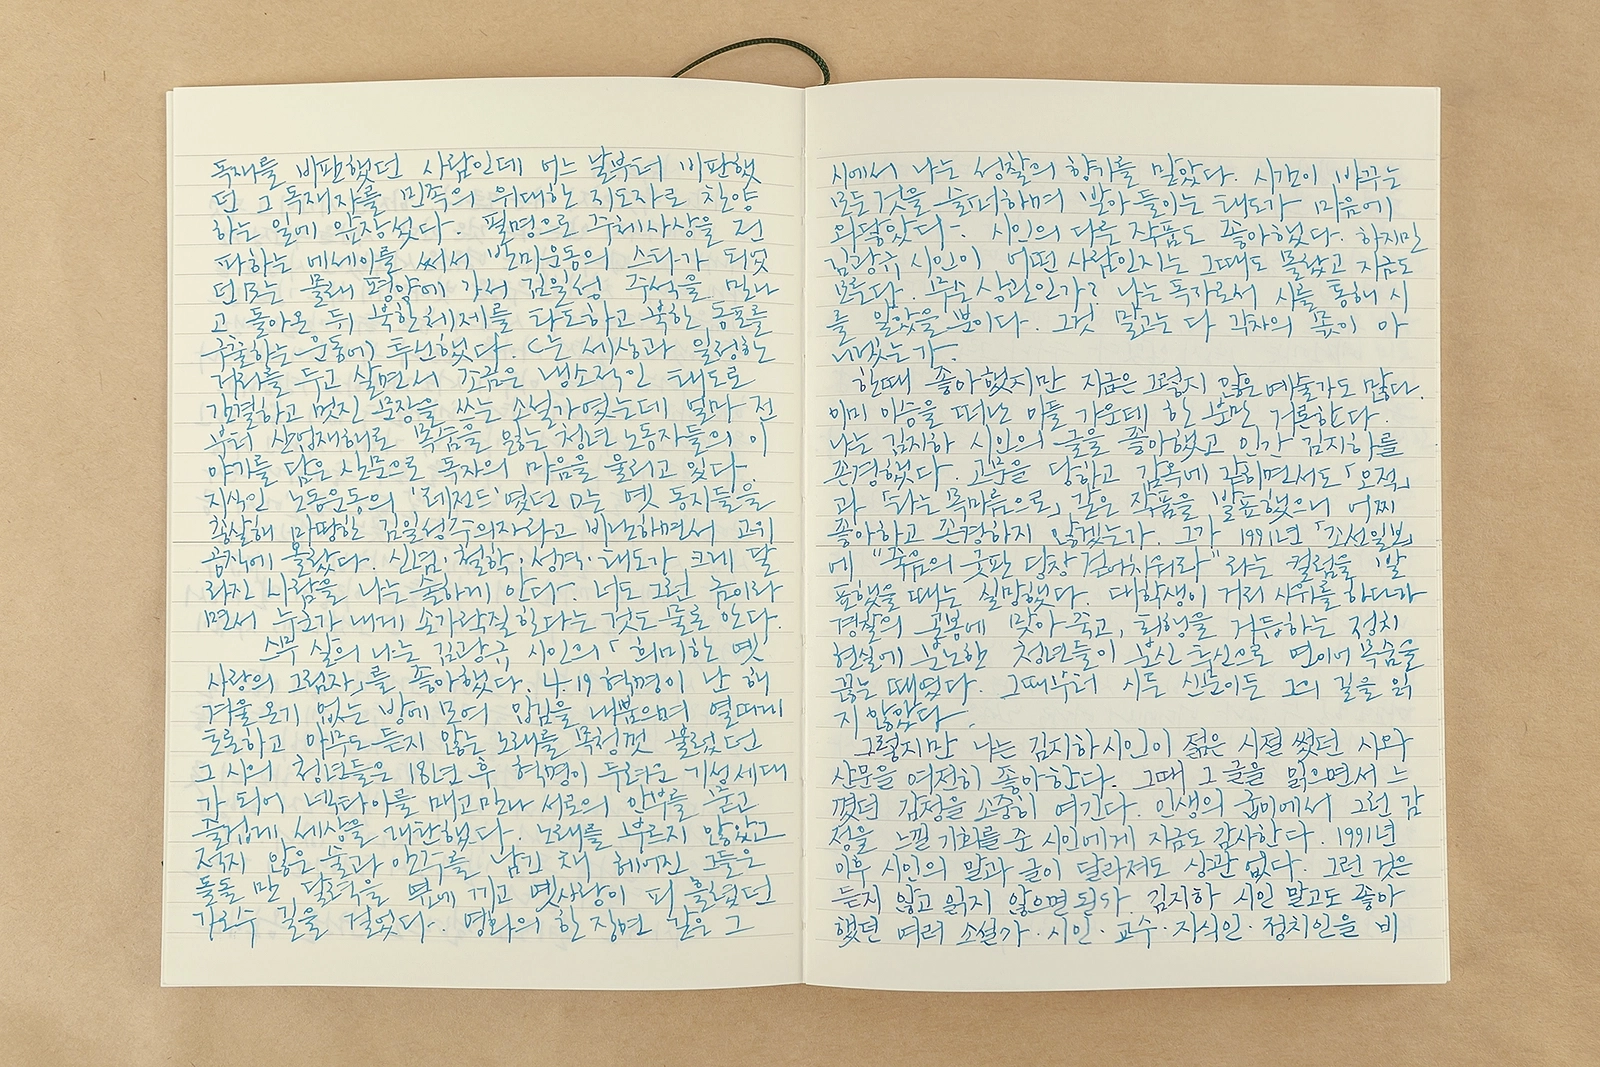 독재를 비판했던 사람인데 어느 날부터 비판했
던 그 독재자를 민족의 위대한 지도자로 찬양
하는 일에 앞장섰다. 필명으로 주체사상을 전
파하는 에세이를 써서 반미운동의 스타가 되었
던 B는 몰래 평양에 가서 김일성 주석을 만나
고 돌아온 뒤 북한체제를 타도하고 북한 동포를
구출하는 운동에 투신했다. C는 세상과 일정한
거리를 두고 살면서 조금은 냉소적인 태도로
간결하고 멋진 문장을 쓰는 소설가였는데 얼마 전
부터 산업재해로 목숨을 잃는 청년 노동자들의 이
야기를 담은 산문으로 독자의 마음을 울리고 있다.
지식인 노동운동의 '레전드'였던 D는 옛 동지들을
힐살해 마땅한 김일성주의자라고 비난하면서 고위
공직에 올랐다. 신념·철학·성격·태도가 크게 달
라진 사람을 나는 숱하게 안다. 너도 그런 놈이라
면서 누군가 내게 손가락질 한다는 것도 물론 안다.
스무 살의 나는 김광규 시인의 「희미한 옛
사랑의 그림자」를 좋아했다. 4.19 혁명이 난 해
겨울 온기 없는 방에 모여 입김을 내뿜으며 열띠게
토론하고 아무도 듣지 않는 노래를 목청껏 불렀던
그 시의 청년들은 18년 후 혁명이 두려운 기성세대
가 되어 넥타이를 매고 만나 서로의 안부를 묻고
즐겁게 세상을 개탄했다. 노래를 부르지 않았고
적지 않은 술과 안주를 남긴 채 헤어진 그들은
돌돌 만 달력을 옆에 끼고 옛사랑이 피 흘렸던
가로수 길을 걸었다. 영화의 한 장면 같은 그
시에서 나는 성찰의 향기를 맡았다. 시간이 바꾸는
모든 것을 슬퍼하며 받아 들이는 태도가 마음에
와닿았다. 시인의 다른 작품도 좋아했다. 하지만
김광규 시인이 어떤 사람인지는 그때도 몰랐고 지금도
모른다. 무슨 상관인가? 나는 독자로서 시를 통해 시
를 알았을 뿐이다. 그것 말고는 다 각자의 몫이 아
니겠는가.
한때 좋아했지만 지금은 그렇지 않은 예술가도 많다.
이미 이승을 떠난 이들 가운데 한 분만 거론한다.
나는 김지하 시인의 글을 좋아했고 인간 김지하를
존경했다. 고문을 당하고 감옥에 갇히면서도 「오적」
과 「타는 목마름으로」 같은 작품을 발표했으니 어찌
좋아하고 존경하지 않겠는가. 그가 1991년 「조선일보」
에 "죽음의 굿판 당장 걷어치워라"라는 컬럼을 발
표했을 때는 실망했다. 대학생이 거리 시위를 하다가
경찰의 곤봉에 맞아 죽고, 퇴행을 거듭하는 정치
현실에 분노한 청년들이 분신 투신으로 연이어 목숨을
끊는 때였다. 그때부터 시든 산문이든 그의 글을 읽
지 않았다.
그렇지만 나는 김지하 시인이 젊은 시절 썼던 시와
산문을 여전히 좋아한다. 그때 그 글을 읽으면서 느
꼈던 감정을 소중히 여긴다. 인생의 굽이에서 그런 감
정을 느낄 기회를 준 시인에게 지금도 감사한다. 1991년
이후 시인의 말과 글이 달라져도 상관 없다. 그런 것은
듣지 않고 읽지 않으면 된다. 김지하 시인 말고도 좋아
했던 여러 소설가·시인·교수·지식인·정치인을 비